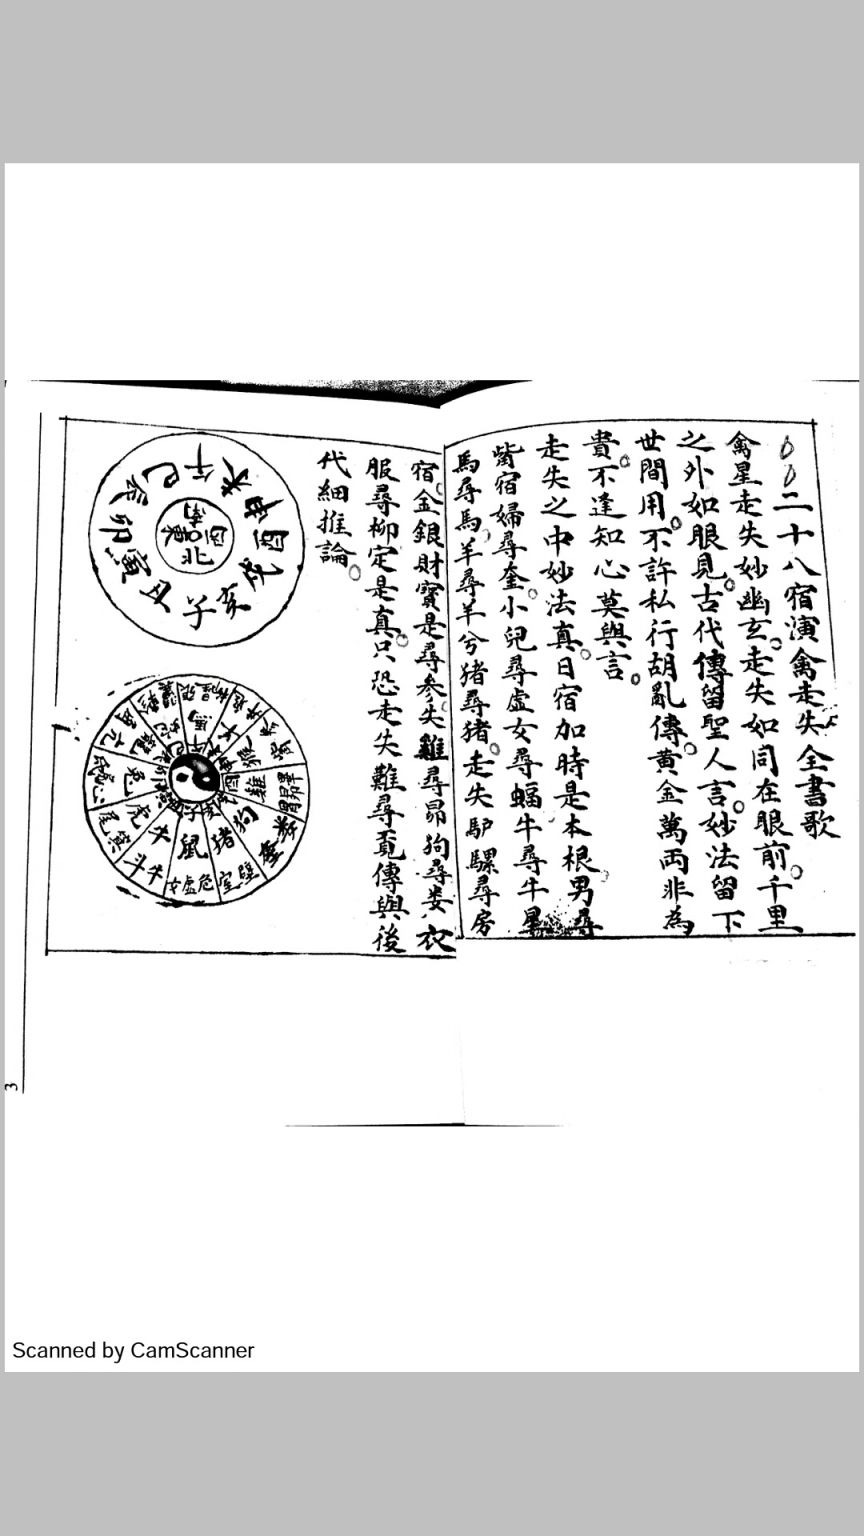 二十八宿演禽走失全書歌
禽星走失妙幽玄走失如同在眼前千里
之外如眼見古代傳留聖人言妙法留下
世間用不許私行胡亂傳黃金萬両非為
貴不逢知心莫與言
走失之中妙法真日宿加時是本根男尋
觜宿婦尋奎小兒尋虛女尋蝠牛尋牛星
馬尋馬羊尋羊兮猪尋猪走失馿騾尋房
宿金銀財寳是尋参失雞尋昴狗尋娄衣
服尋柳定是真只恐走失難尋覔傳與後
代細推論
午未申酉戌亥子丑寅卯辰巳
南西北東
鼠 牛 虎 兎 龍 蛇 馬 羊 猴 雞 狗 猪
女虛危
室壁
奎婁
胃昴畢
觜參
井鬼
柳星張
翼軫
角亢
氐房心
尾箕
斗牛
3
Scanned by CamScanner